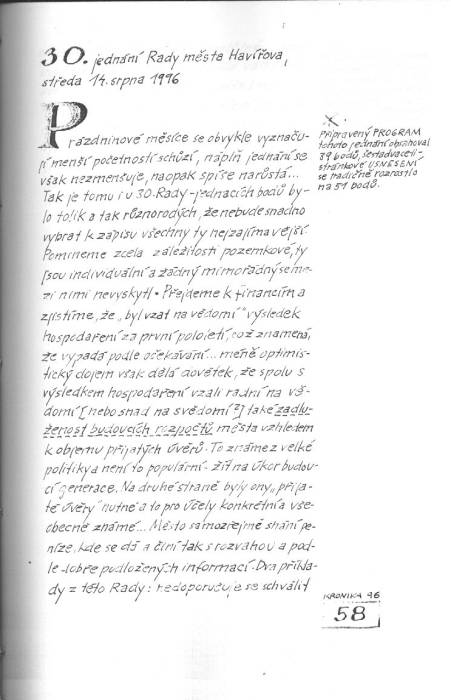 30. jednání Rady města Havířova,
středa 14. srpna 1996
Prázdninové měsíce se obvykle vyznaču-
jí menší početností schůzí, náplň jednání se
však nezmenšuje, naopak spíše narůstá...
Tak je tomu i u 30. Rady - jednacích bodů by-
lo tolik a tak různorodých, že nebude snadno
vybrat k zápisu všechny ty nejzajímavější.
Pomineme zcela záležitosti pozemkové, ty
jsou individuální a žádný mimořádný se me-
zi nimi nevyskytl. Přejdeme k financím a
zjistíme, že "byl vzat na vědomí" výsledek
hospodaření za první pololetí, což znamená,
že vypadá podle očekávání... méně optimis-
tický dojem však dělá dovětek, že spolu s
výsledkem hospodaření vzali radní na vě-
domí [nebo snad na svědomí?] také zadlu-
ženost budoucích rozpočtů města vzhledem
k objemu přijatých úvěrů. To známe z velké
politiky a není to populární - žít na úkor budou-
cí generace. Na druhé straně byly ony "přija-
té úvěry" nutné a to pro účely konkrétní a vše-
obecně známé... Město samozřejmě shání pe-
níze, kde se dá a činí tak s rozvahou a pod-
le dobře podložených informací. Dva příkla-
dy z této Rady: nedoporučuje se schválit
Připravený PROGRAM
tohoto jednání obsahoval
39 bodů, šestadvaceti-
stránkové USNESENÍ
se tradičně rozrostlo
na 51 bodů.
KRONIKA 96
58